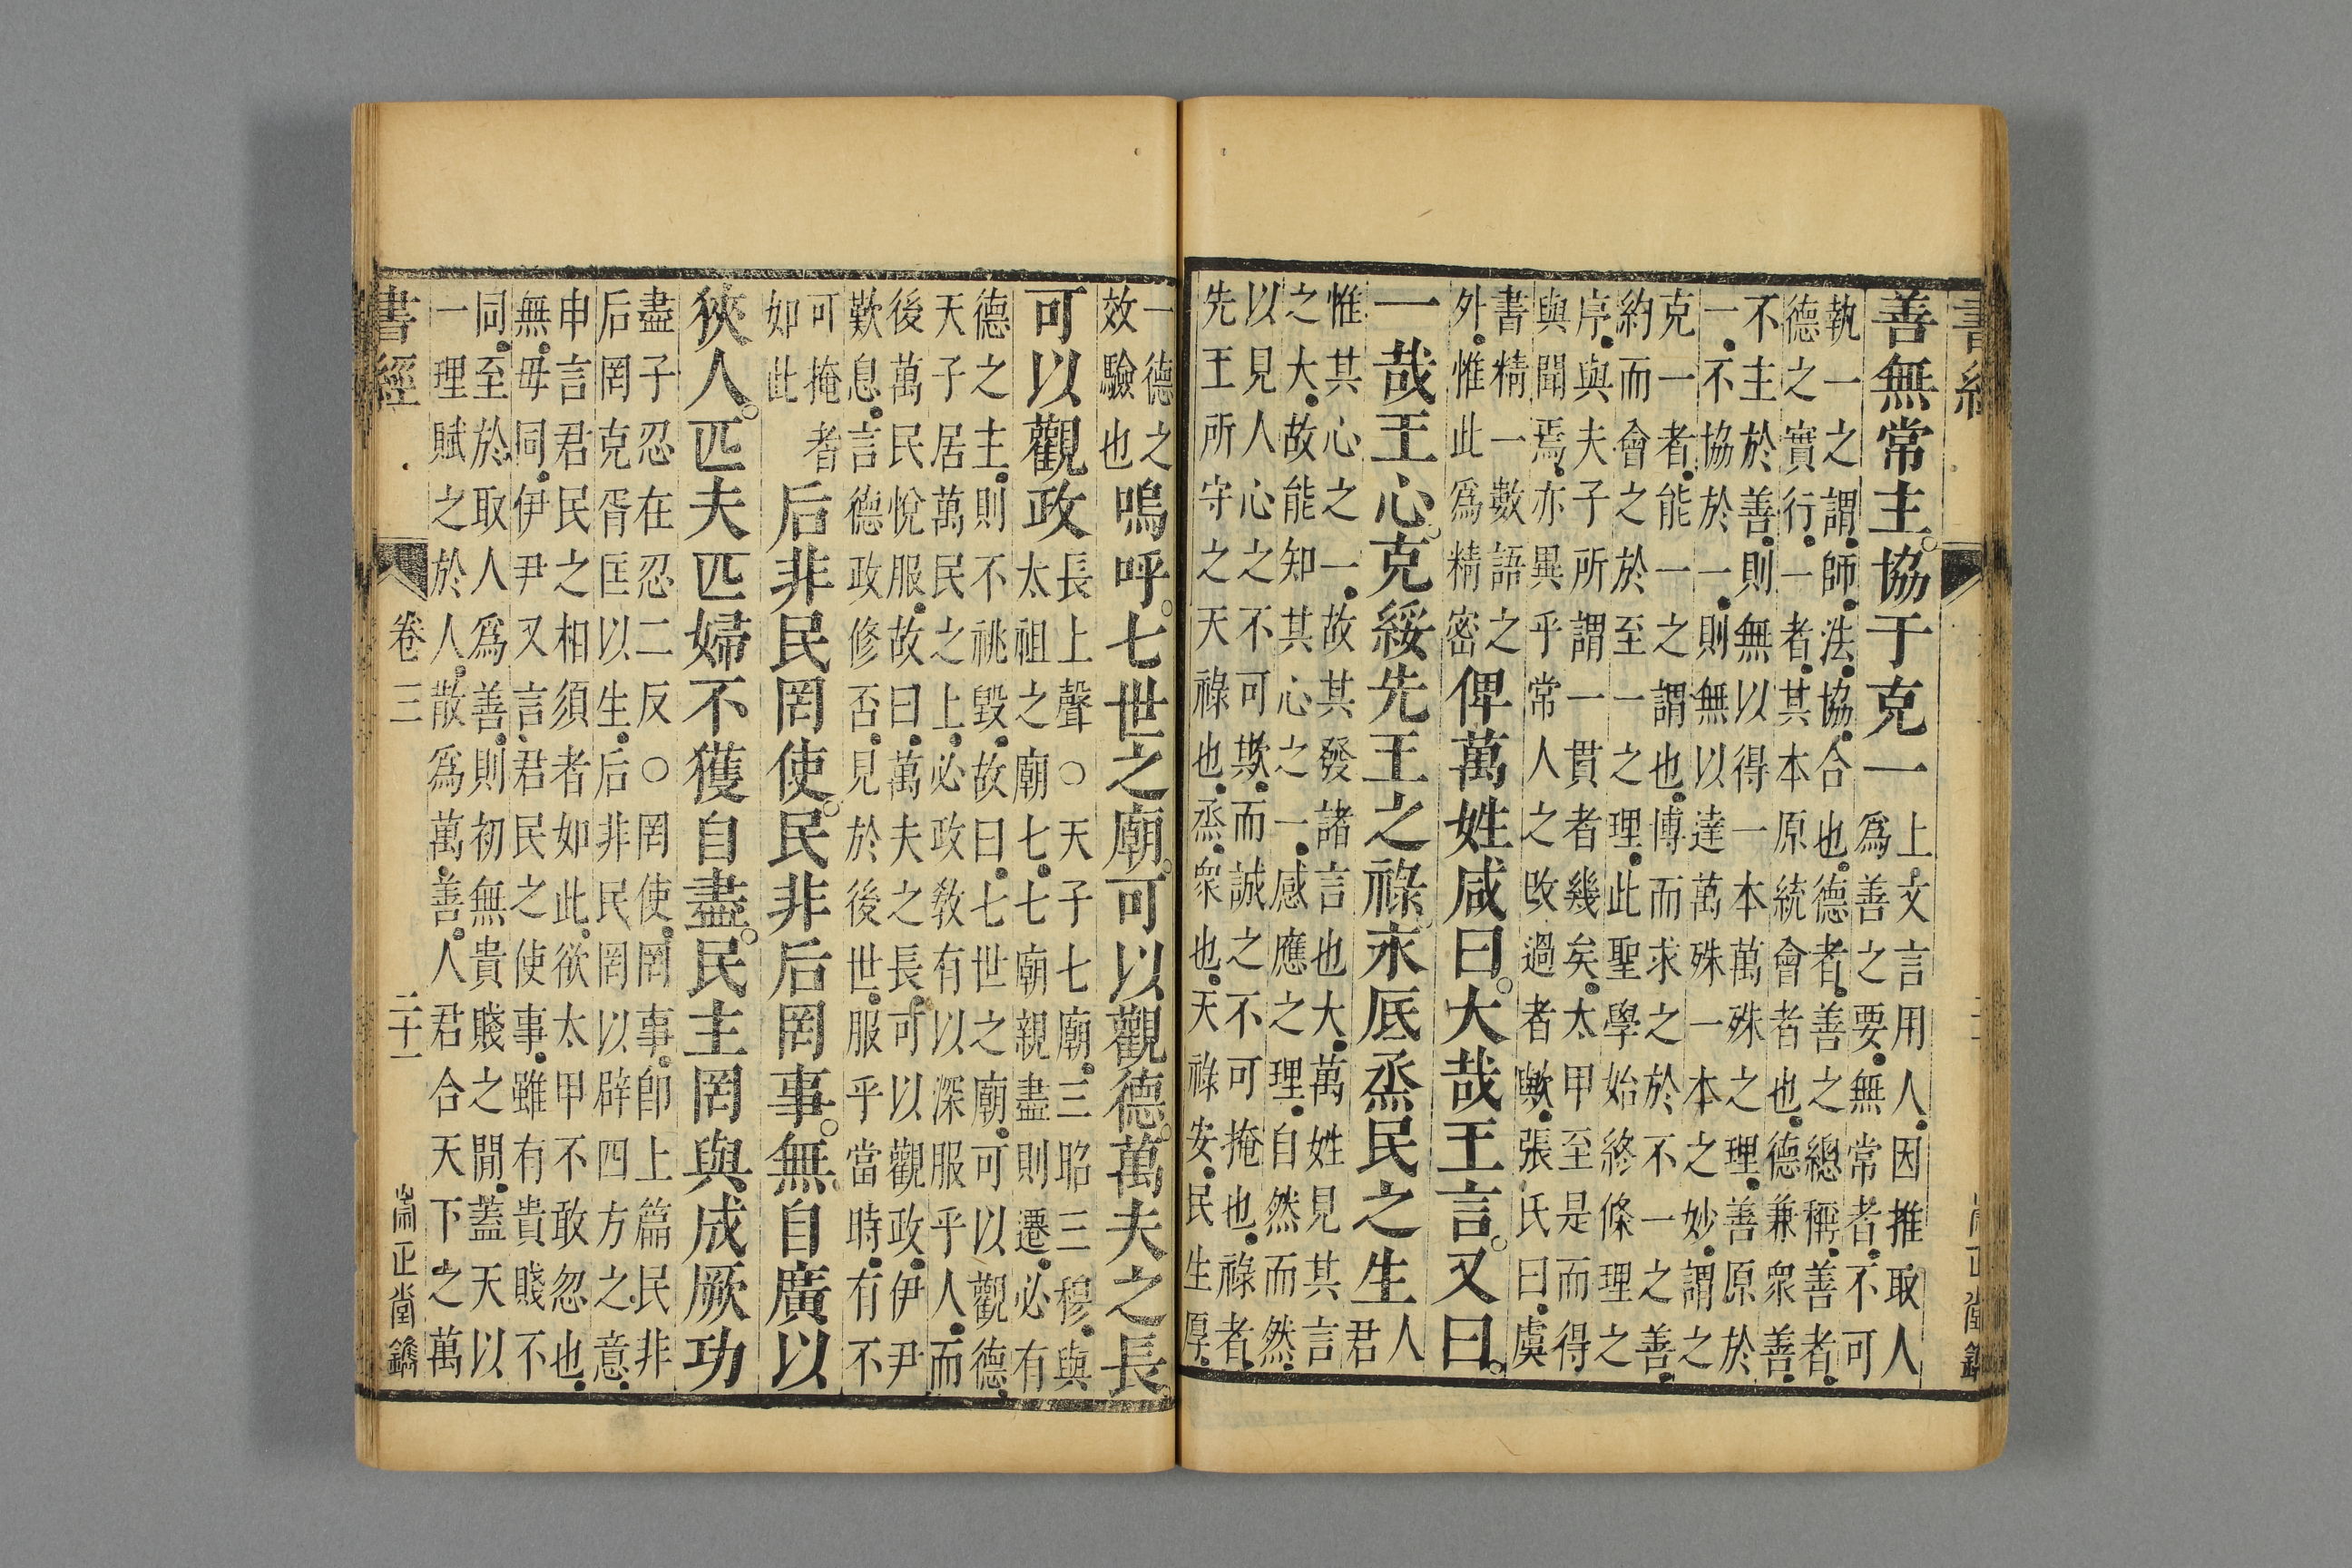 善無常主。協于克一
上文言用人因推取人
爲善之要無常者不可
執一之謂師法協合也德者善之總稱善者
德之實行一者其本原統會者也德兼衆善
不主於善則無以得一本萬殊之理善原於
一不協於一則無以達萬殊一本之妙謂之
克一者能一之謂也博而求之於不一之善
約而會之於至一之理此聖學始終條理之
序與夫子所謂一貫者幾矣太甲至是而得
與聞焉亦異乎常人之改過者歟張氏曰虞
書精一數語之
外惟此爲精密
俾萬姓咸曰。大哉王言。又曰。
一哉王心。克綏先王之祿。永底烝民之生
人
君
惟其心之一故其發諸言也大萬姓見其言
之大故能知其心之一感應之理自然而然
以見人心之不可欺而誠之不可掩也祿者
先王所守之天祿也烝衆也天祿安民生厚
一德之
效驗也
嗚呼。七世之廟。可以觀德。萬夫之長。
可以觀政
長上聲○天子七廟三昭三穆與
太祖之廟七七廟親盡則遷必有
德之主則不祧毀故曰七世之廟可以觀德
天子居萬民之上必政敎有以深服乎人而
後萬民悅服故曰萬夫之長可以觀政伊尹
歎息言德政修否見於後世服乎當時有不
可掩者
如此
后非民罔使。民非后罔事。無自廣以
狹人。匹夫匹婦不獲自盡。民主罔與成厥功
盡子忍在忍二反○罔使罔事卽上篇民非
后罔克胥匡以生后非民罔以辟四方之意
申言君民之相須者如此欲太甲不敢忽也
無毋同伊尹又言君民之使事雖有貴賤不
同至於取人爲善則初無貴賤之閒蓋天以
一理賦之於人散爲萬善人君合天下之萬
書經
卷三
二十一
崇正堂鐫